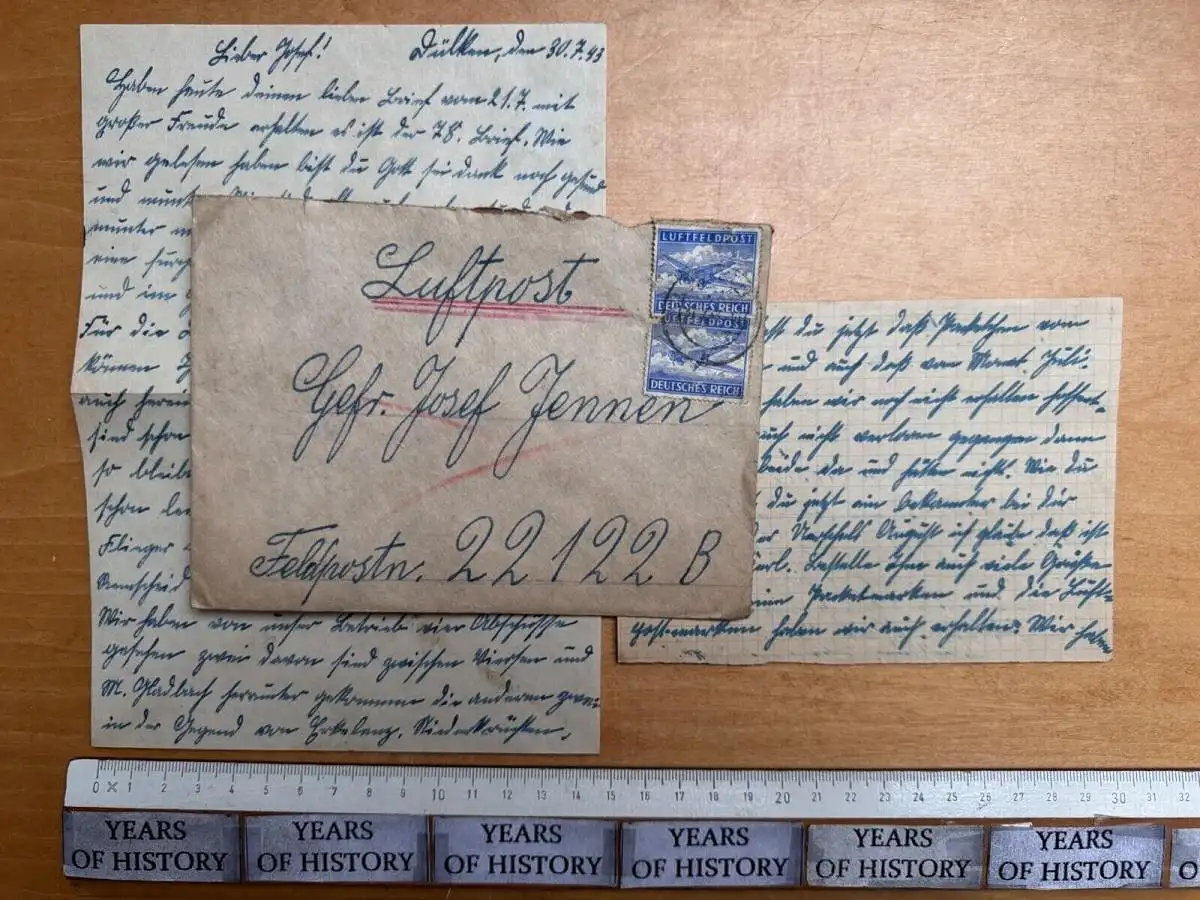 Lieber Josef! Dülken, den 30.7.43
Haben heute deinen lieben Brief vom 21.7. mit
großer Freude erhalten es ist der 78. Brief. Wie
wir gelesen haben bist du Gott sei dank noch gesund
und
munter
eine
und im
Für die
können
auch herein
sind schon
so bleib
schon
Flieger
Remscheid
Wir haben von unser Betrieb vier Abschüsse
gesehen zwei davon sind zwischen Viersen und
M. Gladbach herrunter gekommen die anderen zwei
in der Gegend von Erkelenz. Niederkrüchten,
Luftpost
Gefr. Josef Jennen
Feldpostn. 22122 B
LUFTFELDPOST
DEUTSCHES REICH
LUFTFELDPOST
DEUTSCHES REICH
du jetzt daß Paketchen vom
und auch daß von Monat Juli.
haben wir noch nicht erhalten hoffent-
auch nicht verloren gegangen dann
beide da und hüten nicht. Wie du
du jetzt ein bekannter bei dir
August ich glaube daß ist
Karl. Bestelle Ihm auch viele Grüße
Paketmarken und die Luft-
postmarken haben wir auch erhalten. Wir haben
0 1 2 3 4 5 6 7 8 9 10 11 12 13 14 15 16 17 18 19 20 21 22 23 24 25 26 27 28 29 30 31 32
YEARS OF HISTORY YEARS OF HISTORY YEARS OF HISTORY YEARS OF HISTORY YEARS OF HISTORY YEARS OF HISTORY O